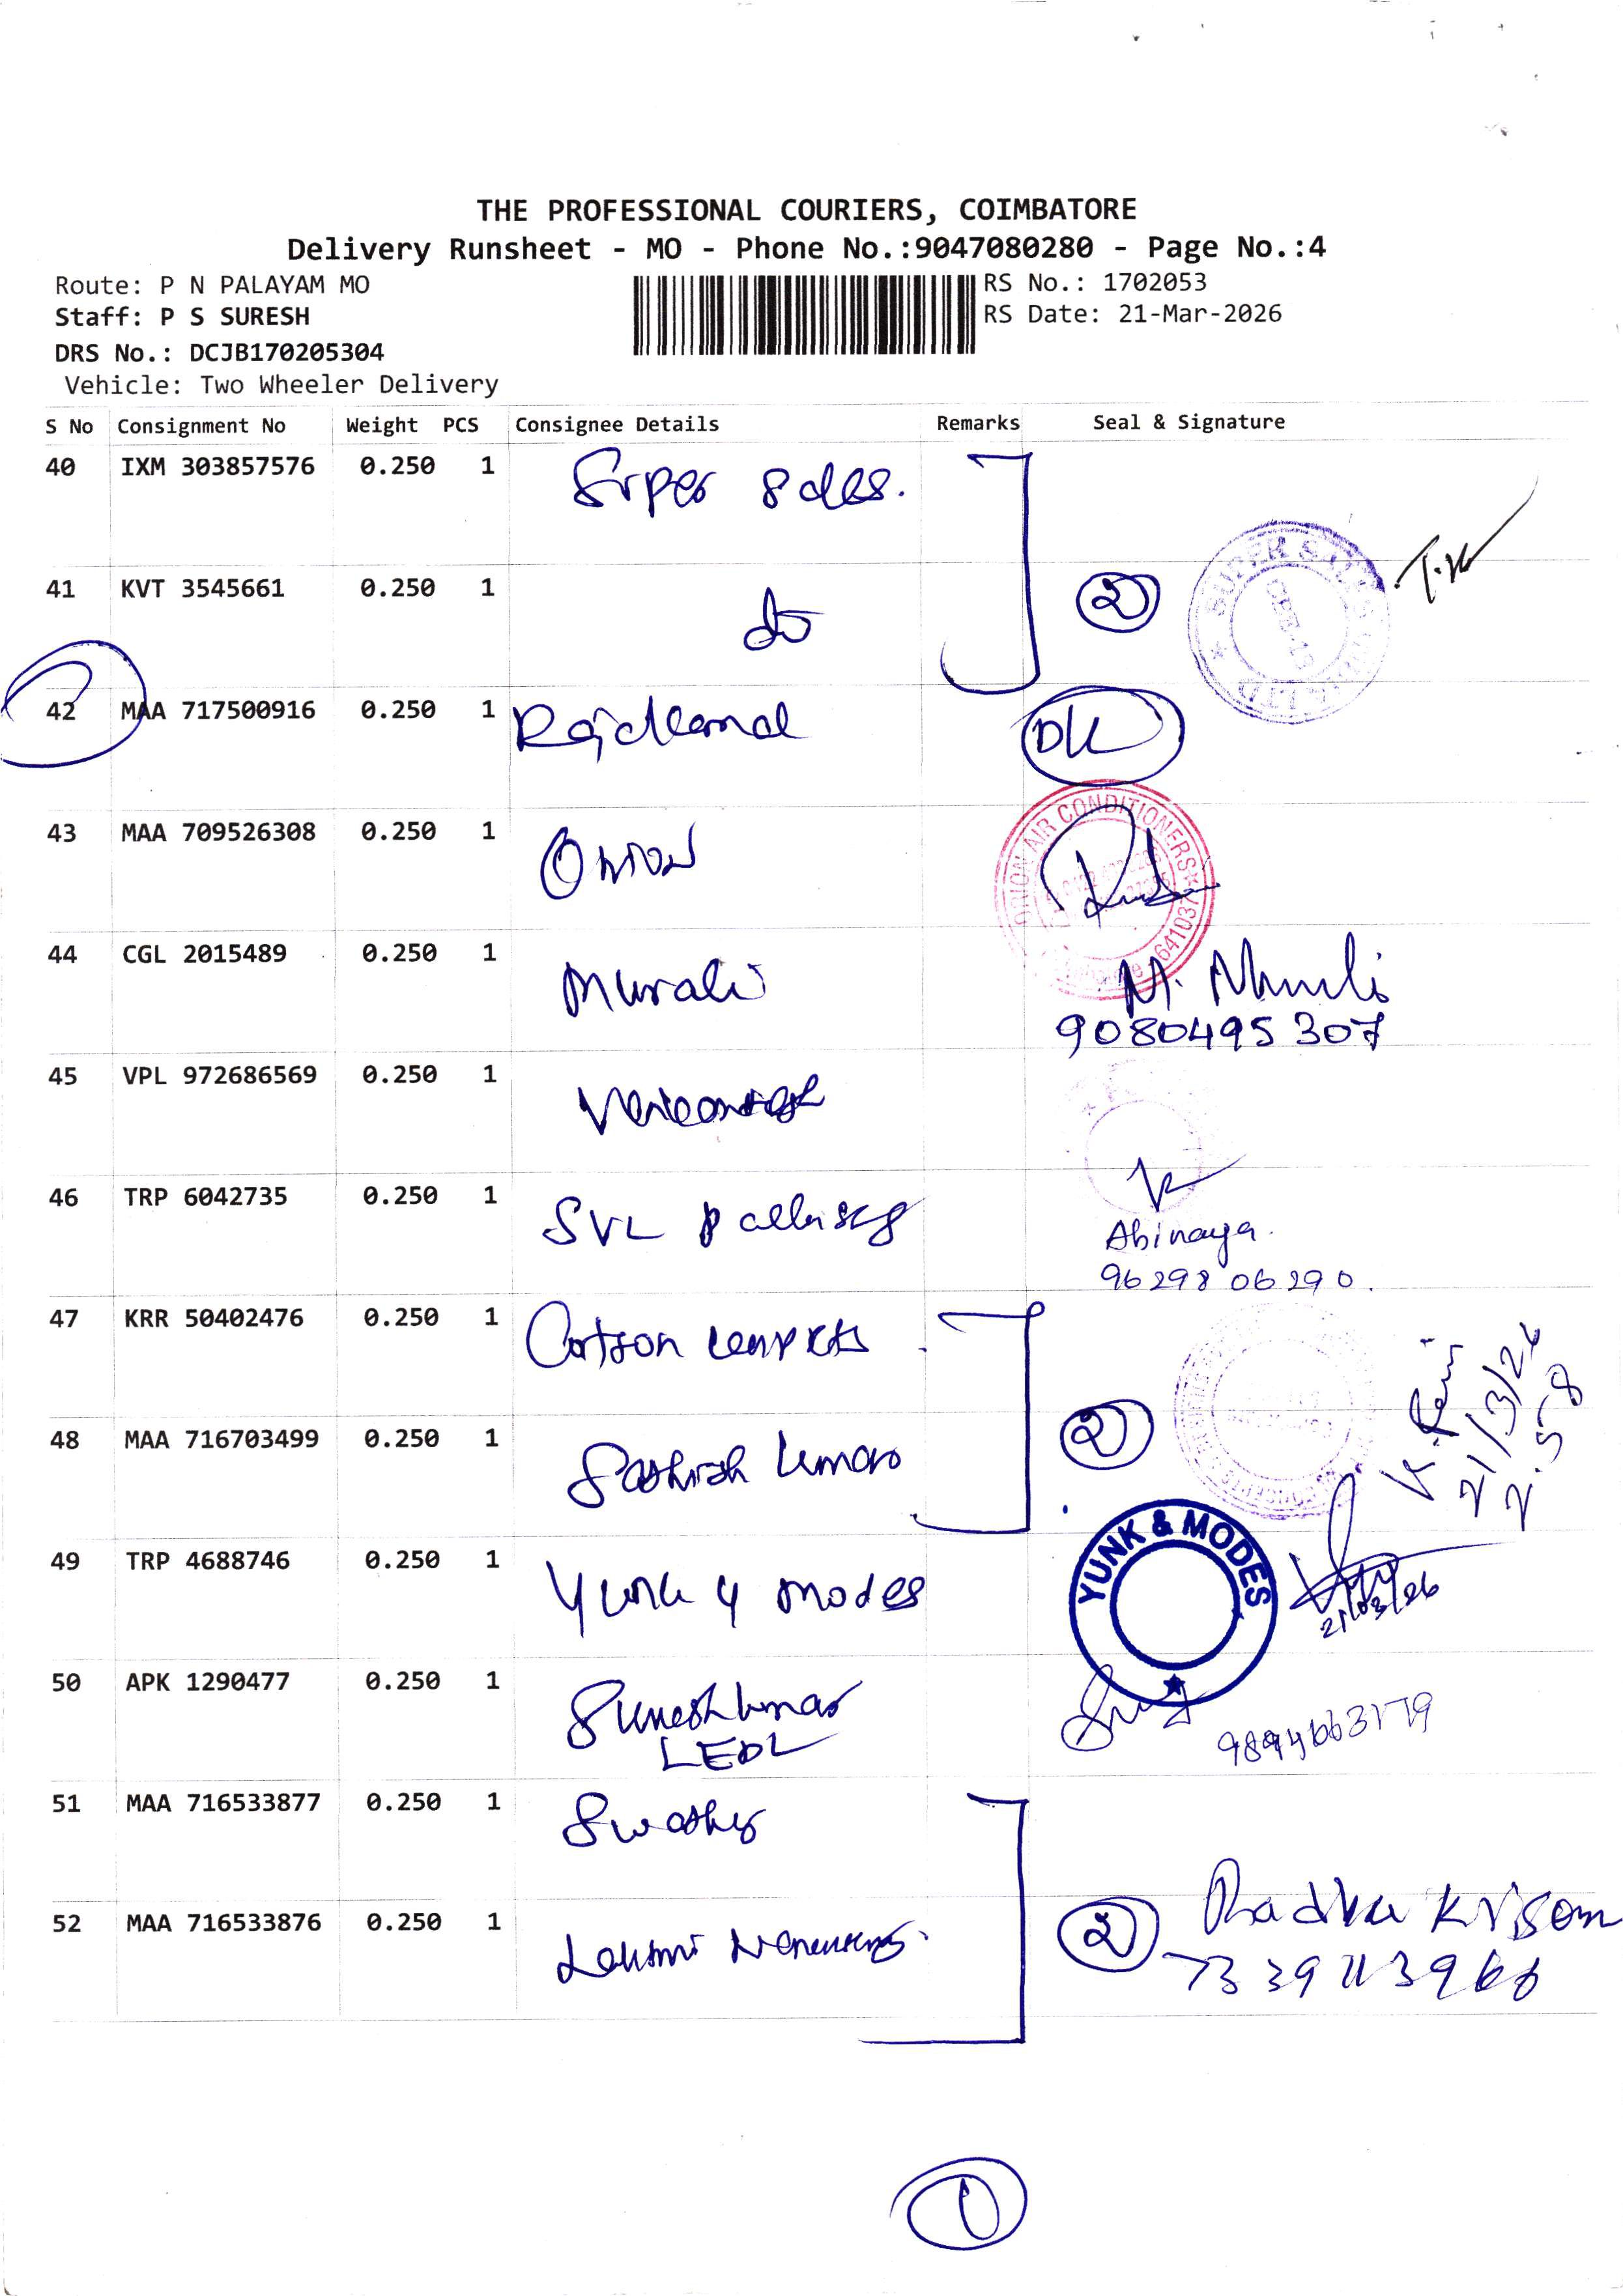 THE PROFESSIONAL COURIERS, COIMBATORE
Delivery Runsheet - MO - Phone No.:9047080280 - Page No.:4
Route: P N PALAYAM MO
RS No.: 1702053
Staff: P S SURESH
RS Date: 21-Mar-2026
DRS No.: DCJB170205304
Vehicle: Two Wheeler Delivery
S No Consignment No Weight PCS Consignee Details Remarks Seal & Signature
40 IXM 303857576 0.250 1 Super Sales.
41 KVT 3545661 0.250 1 do 2
SUPER SALES
42 MAA 717500916 0.250 1 DK
43 MAA 709526308 0.250 1 Orion
ORION AIR CONDITIONERS 641037
44 CGL 2015489 0.250 1 Murali M. Murali
9080495307
45 VPL 972686569 0.250 1
46 TRP 6042735 0.250 1 SVL
Abinaya.
96298 06290.
47 KRR 50402476 0.250 1
48 MAA 716703499 0.250 1 2
21/3/26
2.58
49 TRP 4688746 0.250 1 Yunk & Modes
YUNK & MODES
21/03/26
50 APK 1290477 0.250 1 Sureshkumar
51 MAA 716533877 0.250 1
52 MAA 716533876 0.250 1 2
7339113966
1